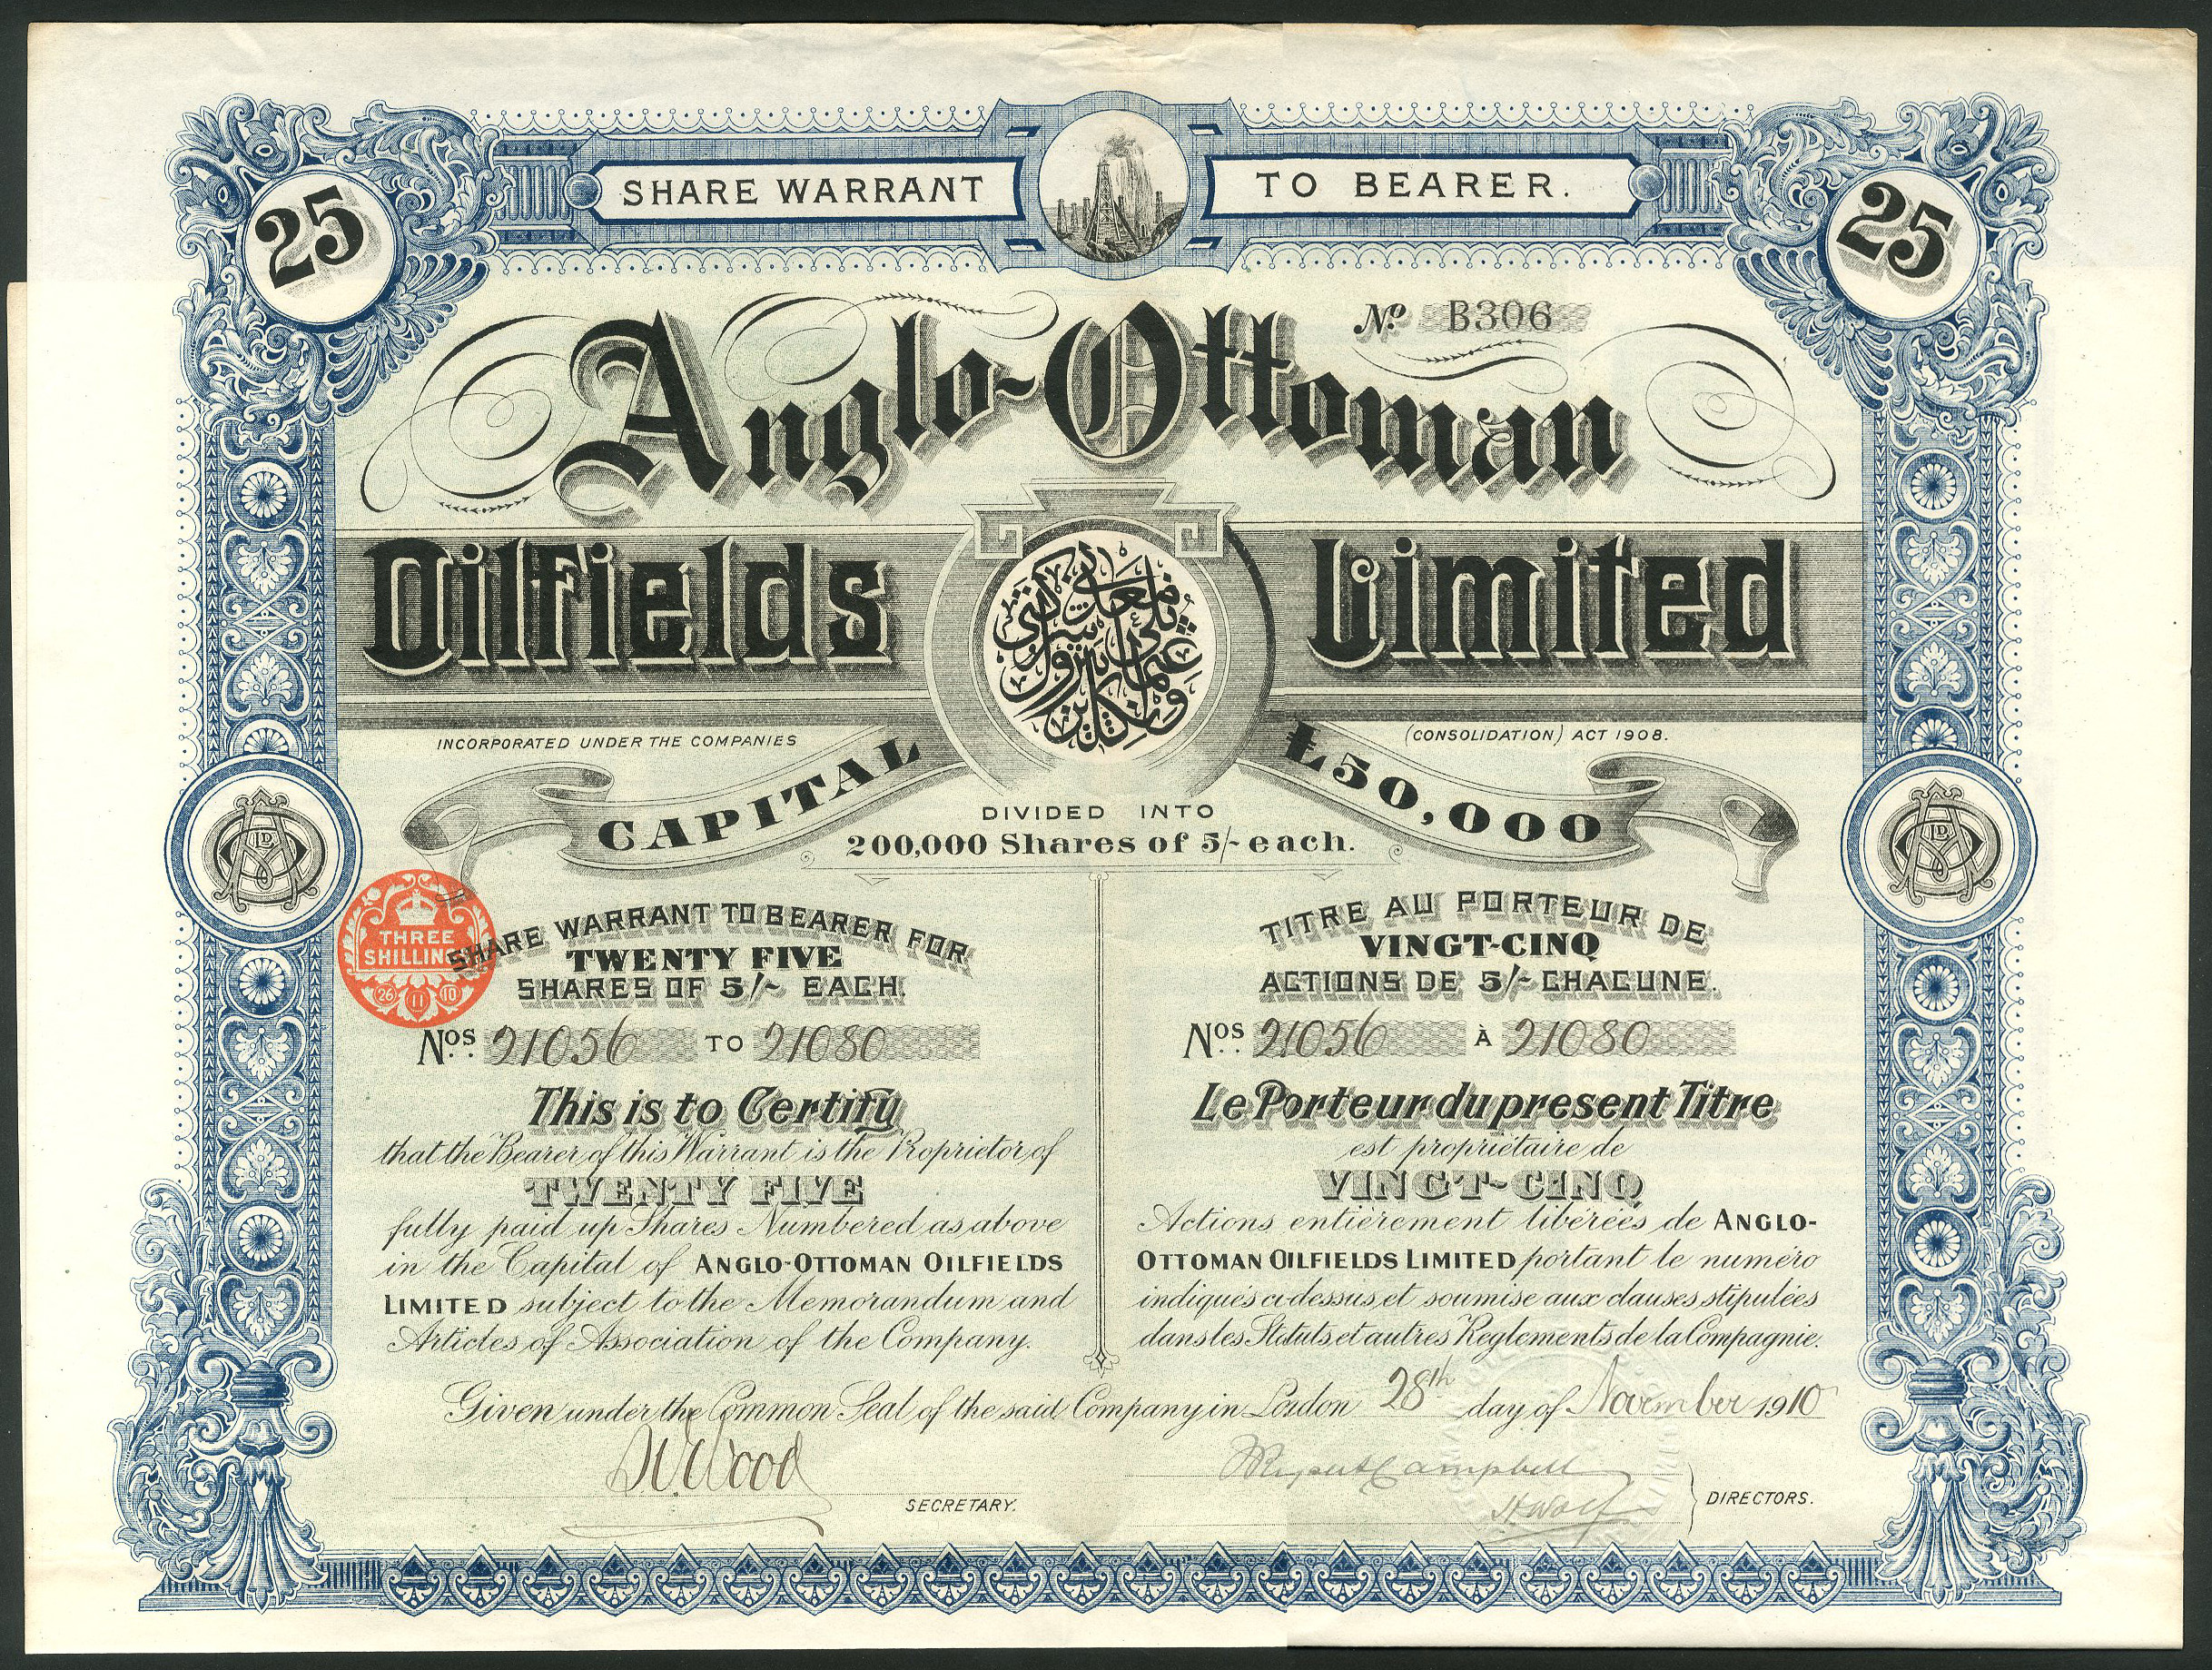 SHARE WARRANT TO BEARER.
25
25
No. B306
Anglo-Ottoman
Oilfields Limited
INCORPORATED UNDER THE COMPANIES (CONSOLIDATION) ACT 1908.
CAPITAL £50,000
DIVIDED INTO
200,000 Shares of 5/- each.
THREE
SHILLIN
26 11 10
SHARE WARRANT TO BEARER FOR
TWENTY FIVE
SHARES OF 5/- EACH.
Nos. 21056 TO 21080
This is to Certify
that the Bearer of this Warrant is the Proprietor of
TWENTY FIVE
fully paid up Shares Numbered as above
in the Capital of ANGLO-OTTOMAN OILFIELDS
LIMITED subject to the Memorandum and
Articles of Association of the Company.
TITRE AU PORTEUR DE
VINGT-CINQ
ACTIONS DE 5/- CHACUNE.
Nos. 21056 À 21080
Le Porteur du present Titre
est propriétaire de
VINGT-CINQ
Actions entièrement libérées de ANGLO-
OTTOMAN OILFIELDS LIMITED portant le numéro
indiqués ci-dessus et soumise aux clauses stipulées
dans les Statuts et autres Reglements de la Compagnie.
Given under the Common Seal of the said Company in London 28th day of November 1910
Wood
SECRETARY.
Rupert Campbell
H Wolf
DIRECTORS.